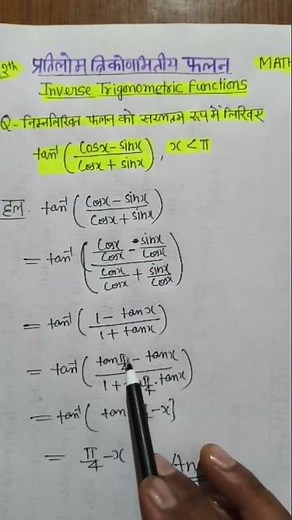 2th प्रतिलोम त्रिकोणमितीय फलन MATH
Inverse Trigonometric Functions
Q- निम्नलिखित फलन को सरलतम रूप में लिखिए
tan⁻¹ (cosx - sinx / cosx + sinx), x < π
हल tan⁻¹ (cosx - sinx / cosx + sinx)
= tan⁻¹ (cosx/cosx - sinx/cosx / cosx/cosx + sinx/cosx)
= tan⁻¹ (1 - tanx / 1 + tanx)
= tan⁻¹ (tan π/4 - tanx / 1 + π/4 . tanx)
= tan⁻¹ ( tan - x}
= π/4 - x Ans